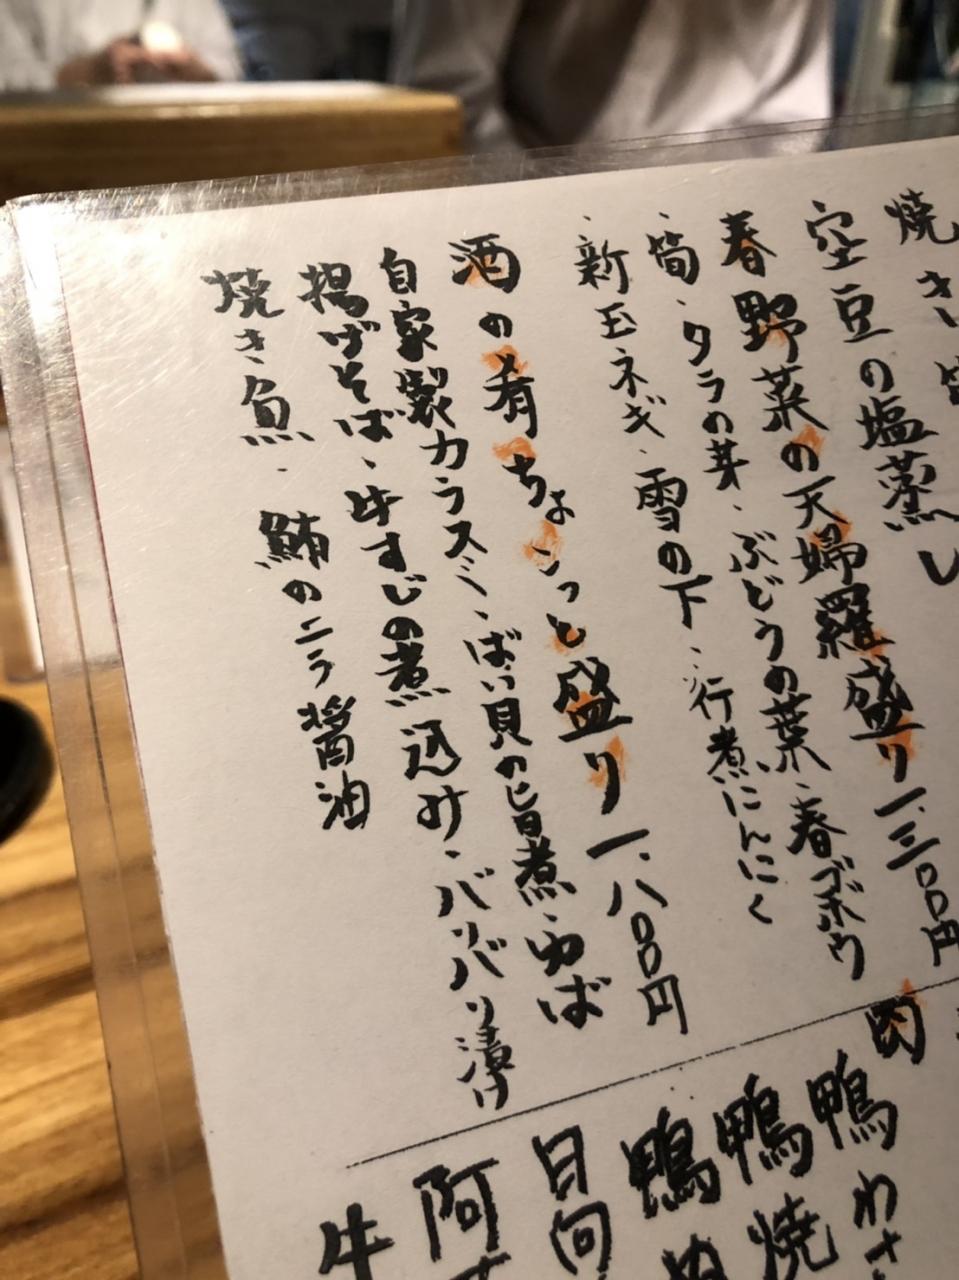 焼き
空豆の塩蒸し
春野菜の天婦羅盛り 一、三〇〇円
・筍・タラの芽・ぶどうの葉・春ゴボウ
・新玉ネギ・雪の下・行者にんにく
酒の肴ちょこっと盛り 一、八〇〇円
自家製カラスミ・ばい貝の旨煮・ゆば
揚げそば・牛すじの煮込み・バリバリ漬け
焼き魚・鮪のニラ醤油
肉
鴨わさ
鴨焼
鴨ぬ
日向
阿
牛